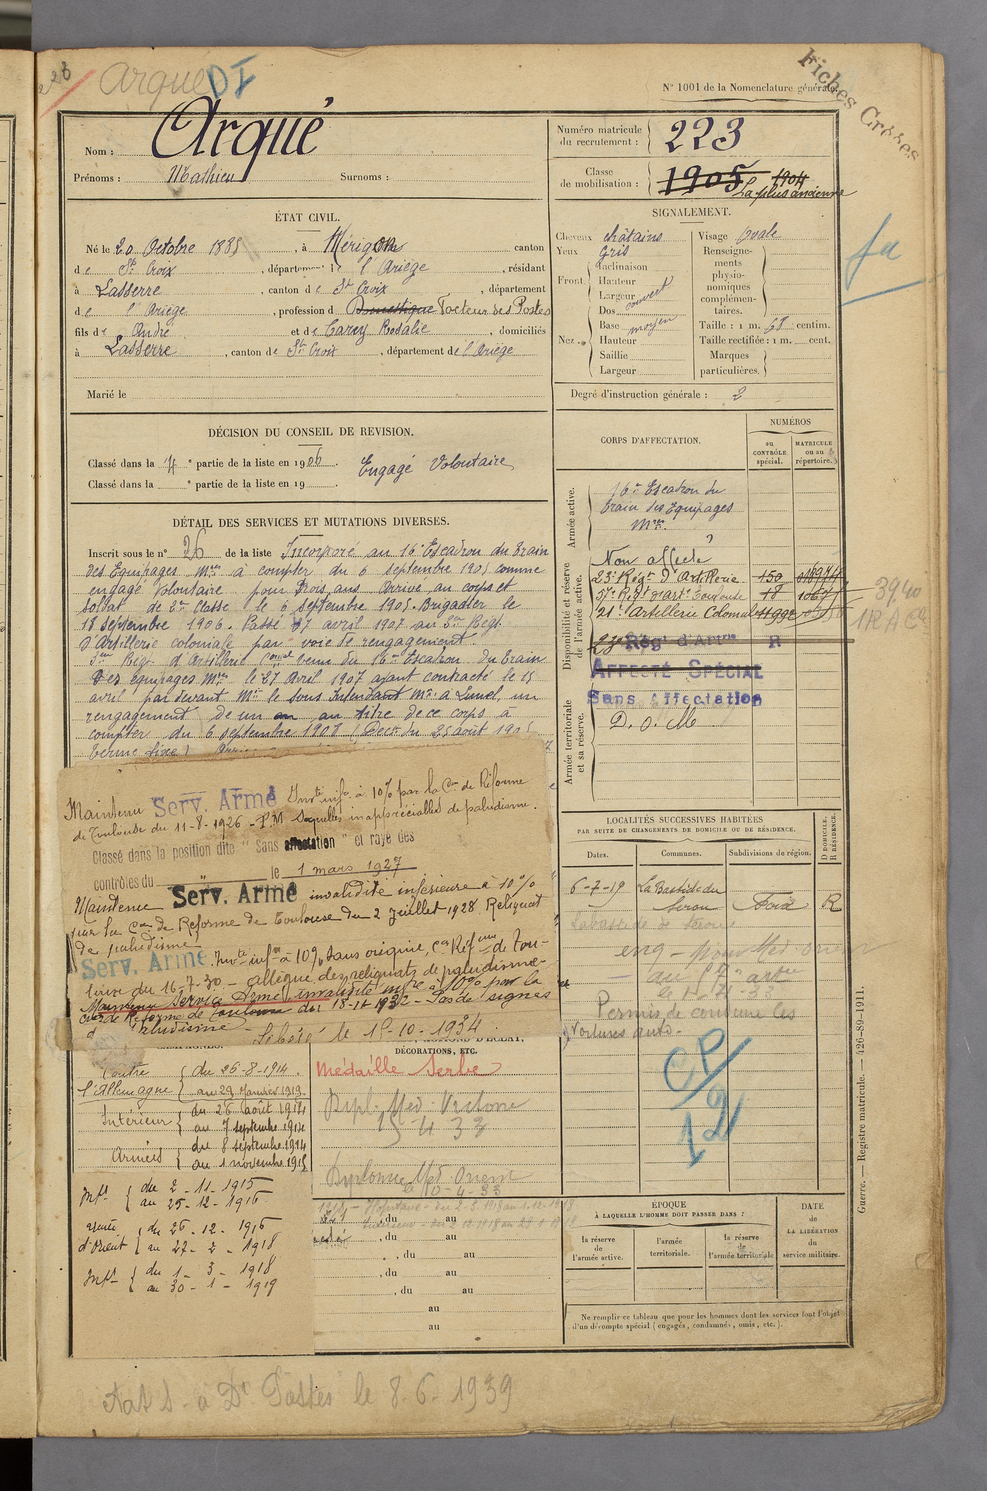 Argué DI
N° 1001 de la Nomenclature générale.
Fiches Croses
Nom : Argué
Prénoms : Mathieu Surnoms :
Numéro matricule du recrutement : 223
Classe de mobilisation : 1905 1904
La plus ancienne
ÉTAT CIVIL.
Né le 20 Octobre 1885, à Mérigon canton
de St Croix, département de l'Ariège, résidant
à Lasserre, canton de St Croix, département
de l'Ariège, profession d Domestique Facteur des Postes
fils de André et de Carry Rosalie, domiciliés
à Lasserre, canton de St Croix, département de l'Ariège
Marié le
SIGNALEMENT.
Cheveux châtains
Yeux gris
Front Inclinaison
Hauteur
Largeur couvert
Nez Dos
Base moyen
Hauteur
Saillie
Largeur
Visage Ovale
Renseignements physionomiques complémentaires.
Taille : 1 m. 68 centim.
Taille rectifiée : 1 m. cent.
Marques particulières.
Degré d'instruction générale : 2
fa
DÉCISION DU CONSEIL DE REVISION.
Classé dans la 4e partie de la liste en 1906. Engagé Volontaire
Classé dans la e partie de la liste en 19 .
DÉTAIL DES SERVICES ET MUTATIONS DIVERSES.
Inscrit sous le n° 26 de la liste Incorporé au 16e Escadron du Train
des Equipages Mres à compter du 6 septembre 1905 comme
engagé volontaire pour trois ans Arrivé au corps et
soldat de 2me Classe le 6 septembre 1905. Brigadier le
18 septembre 1906. Passé 27 avril 1907 au 3me Regt
d'Artillerie coloniale par voie de rengagement.
3me Regt d'Artillerie Conal venu du 16me Escadron du Train
des équipages Mres le 27 Avril 1907 ayant contracté le 15
avril par devant Mr le sous Intendant Mre à Lunel, un
rengagement de un an au titre de ce corps à
compter du 6 septembre 1908 (Decr. du 25 août 1905
terme fixe)
Maintenu Serv. Armé Invté infre à 10% par la Con de Réforme
de Toulouse du 11-8-1926 - P.M Séquelles inappréciables de paludisme.
Classé dans la position dite "Sans affectation" et rayé des
contrôles du le 1 mars 1927
Maintenu Serv. Armé invalidité inférieure à 10%
par la Con de Réforme de Toulouse du 2 juillet 1928. Reliquat
de paludisme
Serv. Armé. Invté infre à 10% sans origine, Con Réfme de Tou-
louse du 16-7-30 - allègue des reliquats de paludisme-
Maintenu Service Armé invalidité infre à 10% par la
Con de Réforme de Toulouse du 18-11-1932 - Pas de signes
d paludisme - Libéré le 15-10-1934.
CORPS D'AFFECTATION.
NUMÉROS
au CONTRÔLE spécial.
MATRICULE ou au répertoire.
Armée active.
16e Escadron du
train des Equipages
Mres
Disponibilité et réserve de l'armée active.
Non affecté
23e Régt d'Artillerie 150
57e Regt d'Art. Toulouse 18 1067
21e Artillerie Coloniale
23 Régt d'Artrie R
AFFECTÉ SPÉCIAL
Sans Affectation
39.40
Armée territoriale et sa réserve.
D. o. M
LOCALITÉS SUCCESSIVES HABITÉES
PAR SUITE DE CHANGEMENTS DE DOMICILE OU DE RÉSIDENCE.
Dates. Communes. Subdivisions de région. D DOMICILE. R RÉSIDENCE.
6-7-19 La Bastide du Seron Foix R
Labastide de Sérou
Permis de conduire les
voitures auto.
CP/12
DÉCORATIONS, ETC.
Médaille Serbe
Dipl. Med. Victoire
Diplome Med. Orient
Contre l'Allemagne { du 26-8-1914.
au 29 Janvier 1919.
Intérieur { du 26 août 1914
au 7 septembre 1914
Armées { du 8 septembre 1914
au 1 novembre 1915
Intr { du 2-11-1915
au 25-12-1916
armée d'Orient { du 26-12-1916
au 27-2-1918
Intr { du 1-3-1918
au 30-1-1919
, du au
, du au
, du au
, du au
, du au
au
au
ÉPOQUE
À LAQUELLE L'HOMME DOIT PASSER DANS :
la réserve de l'armée active.
l'armée territoriale.
la réserve de l'armée territoriale
DATE de LA LIBÉRATION du service militaire.
Ne remplir ce tableau que pour les hommes dont les services font l'objet
d'un décompte spécial (engagés, condamnés, omis, etc.).
Guerre. — Registre matricule. — 426-89-1911.
Postes le 8.6.1939